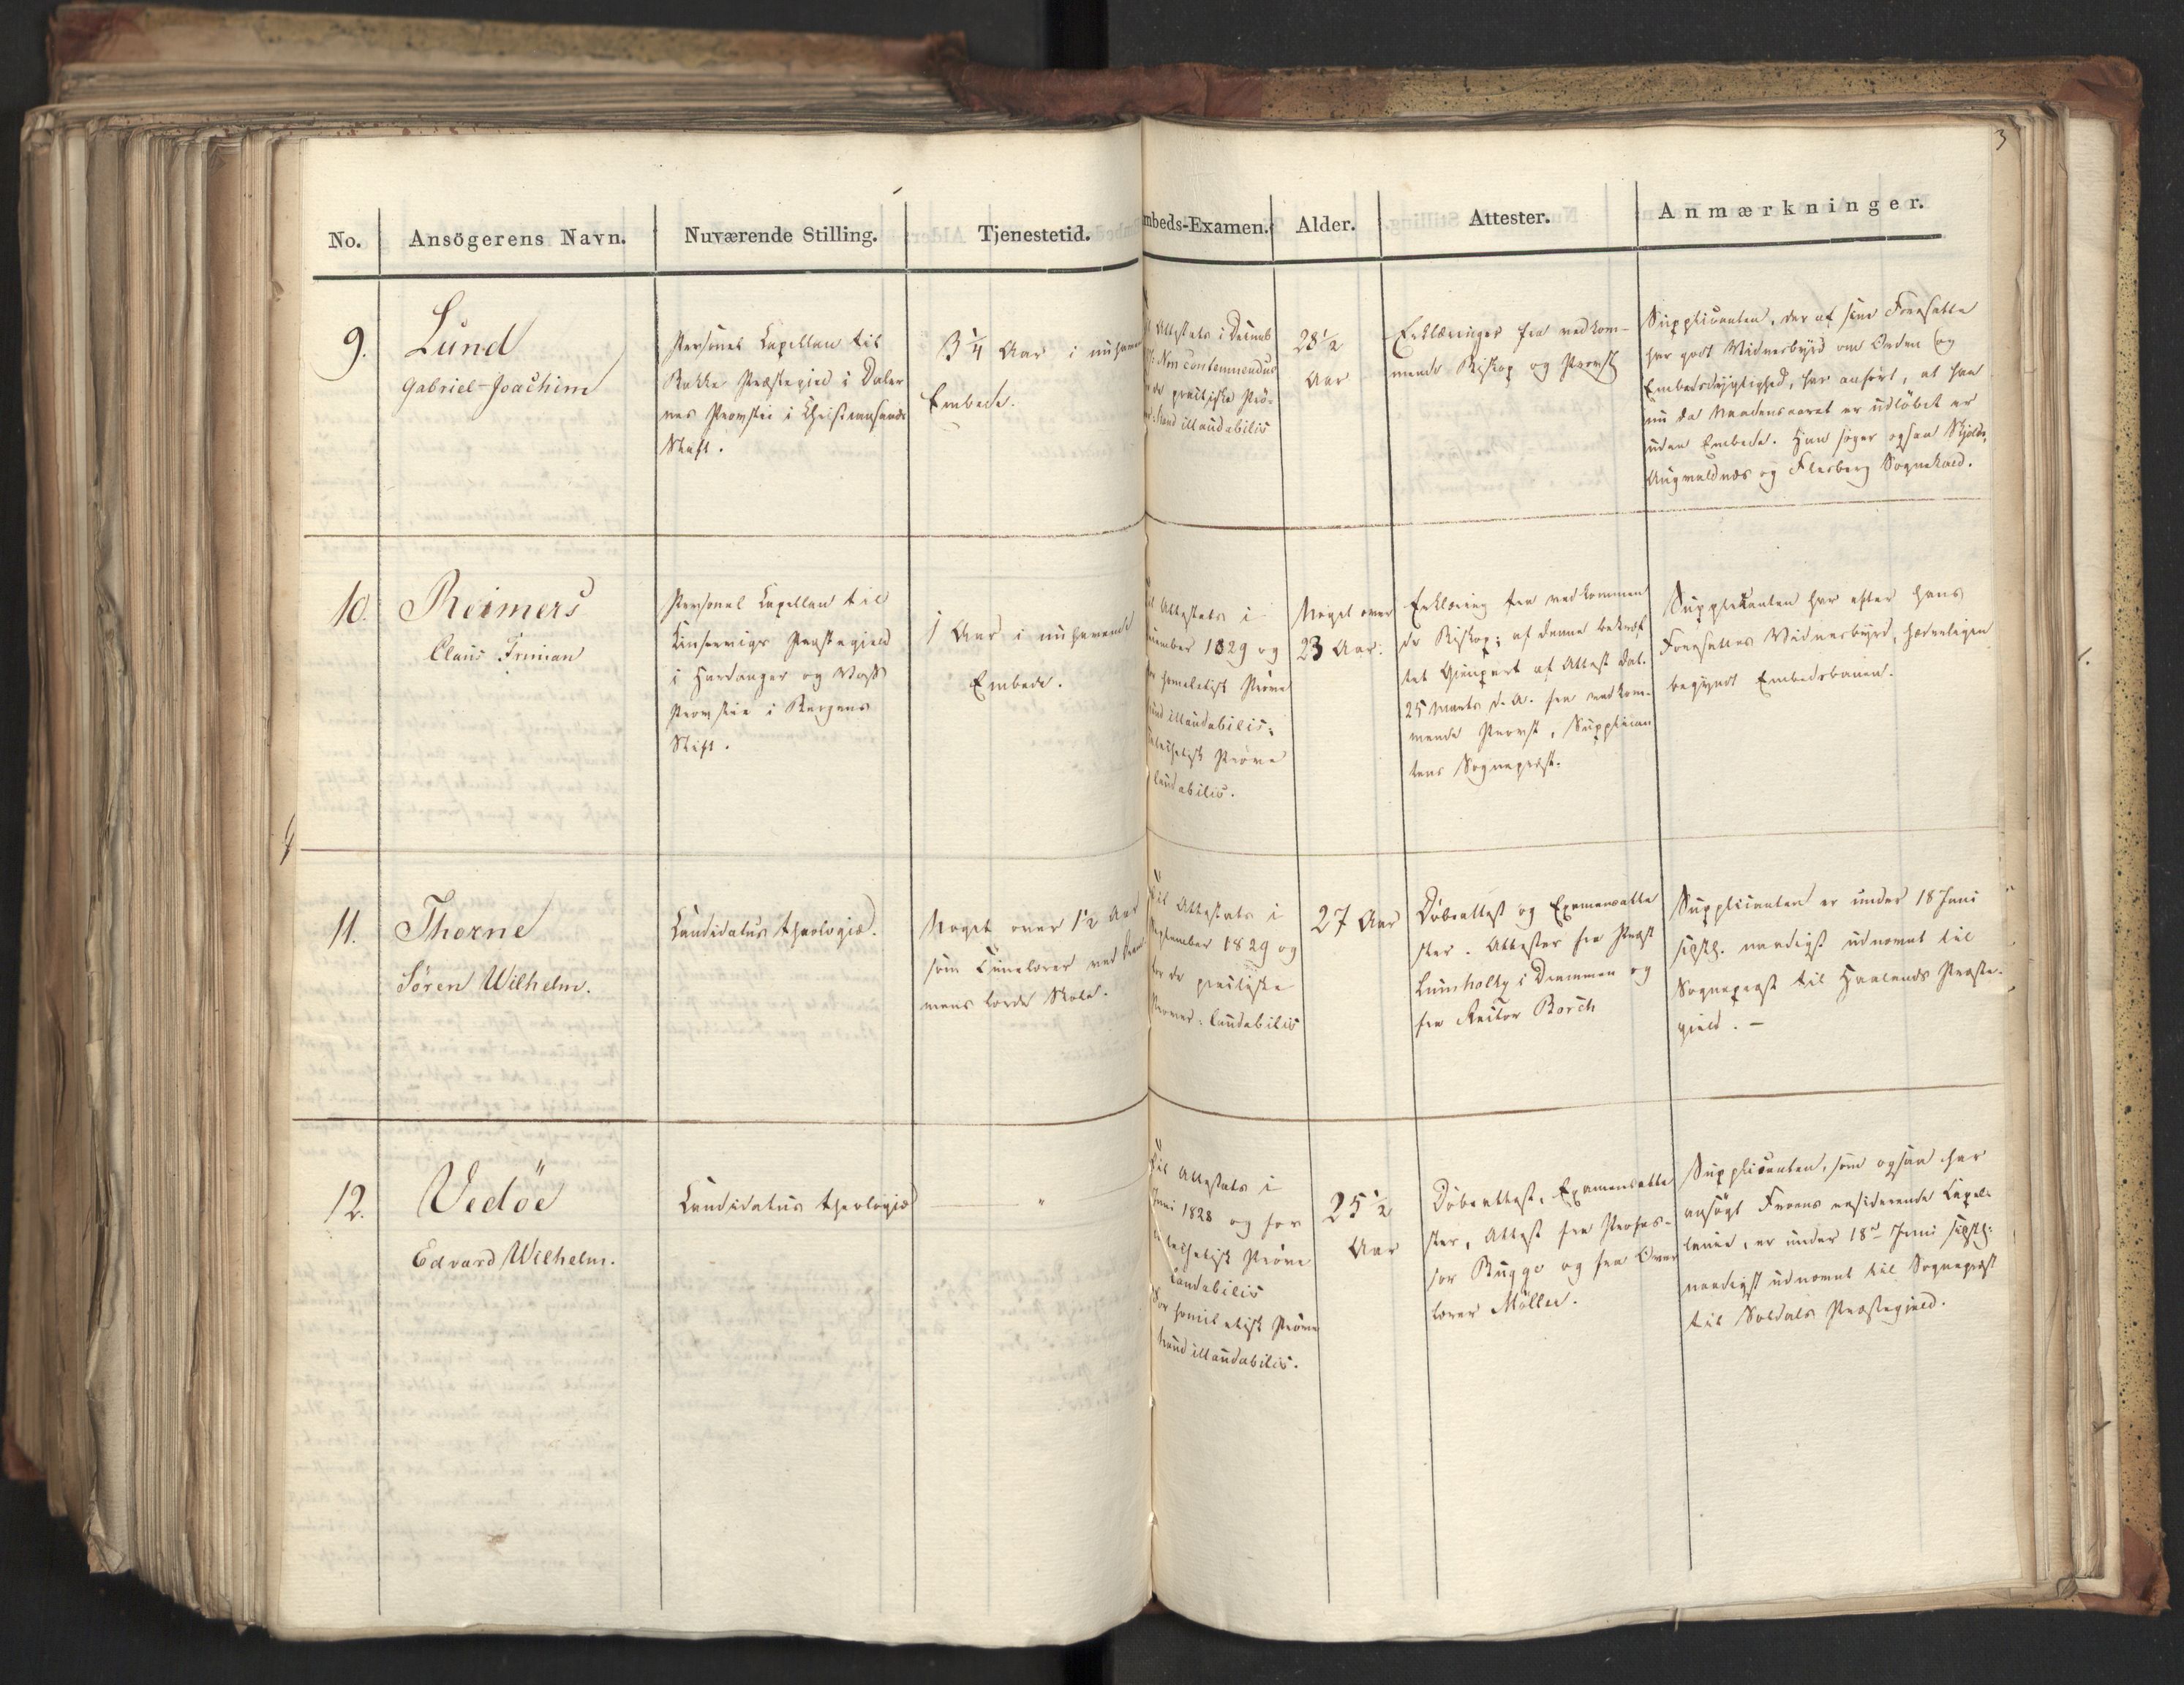 3
No.
Ansögerens Navn.
Nuværende Stilling.
Tjenestetid.
mbeds-Examen.
Alder.
Attester.
Anmærkninger.
9.
Lund
Gabriel-Joachim
Personel Capellan til
Bakke Præstegjeld i Daler
nes Provstie i Christiansands
Stift.
3 1/4 Aar i nuhavende
Embede.
Attestats i Decemb
Non contemnendus
practiske Prö-
Haud illaudabilis
28 1/2
Aar
Erklæringer fra vedkom-
mende Biskop og Provst
Supplicanten, der af sine Foresatte
har godt Vidnesbyrd om Orden og
Embedsdygtighed, har anført, at han
nu da Naadensaaret er udløbet er
uden Embede. Han søger ogsaa Skjolds,
Augvaldnæs og Flesberg Sognekald.
10.
Reimers
Claus Friman
Personel Capellan til
Kinservigs Præstegjeld
i Hardanger og Voss
Provstie i Bergens
Stift.
1 Aar i nuhavende
Embede.
Attestats i
1829 og
homeletisk Prøve
haud illaudabilis;
Prøve
laudabilis.
Noget over
23 Aar.
Erklæring fra vedkommen
de Biskop; af denne bekræf
tet Gjenpart af Attest dat.
25 Marts d. A. fra vedkom-
mende Provst, Supplican
tens Sognepræst.
Supplicanten har efter hans
Foresattes Vidnesbyrd, hæderligen
begyndt Embedsbanen.
11.
Thorne
Sören Wilhelm.
Candidatus theologiæ.
Noget over 1 1/2 Aar
som Timelærer ved Dram
mens lærde Skole.
Til Attestats i
September 1829 og
for de practiske
Prøver: laudabilis
27 Aar
Døbeattest og Examensatte
ster. Attester fra Præst
Lumholtz i Drammen og
fra Rector Borch
Supplicanten er under 18 Juni
sidstl. naadigst udnævnt til
Sognepræst til Haalands Præste-
gield. –
12.
Vedöe
Edvard Wilhelm.
Candidatus theologiæ
"
Til Attestats i
Juni 1828 og for
catechetisk Prøve
Laudabilis
For homiletisk Prøve
haud illaudabilis.
25 1/2
Aar
Døbeattest, Examensatte
ster, Attest fra Profes-
sor Bugge og fra Over
lærer Möller.
Supplicanten, som ogsaa har
ansøgt Froens residerende Capel-
lanie, er under 18de Juni sidstl:
naadigst udnævnt til Sognepræst
til Soldals Præstegjeld.